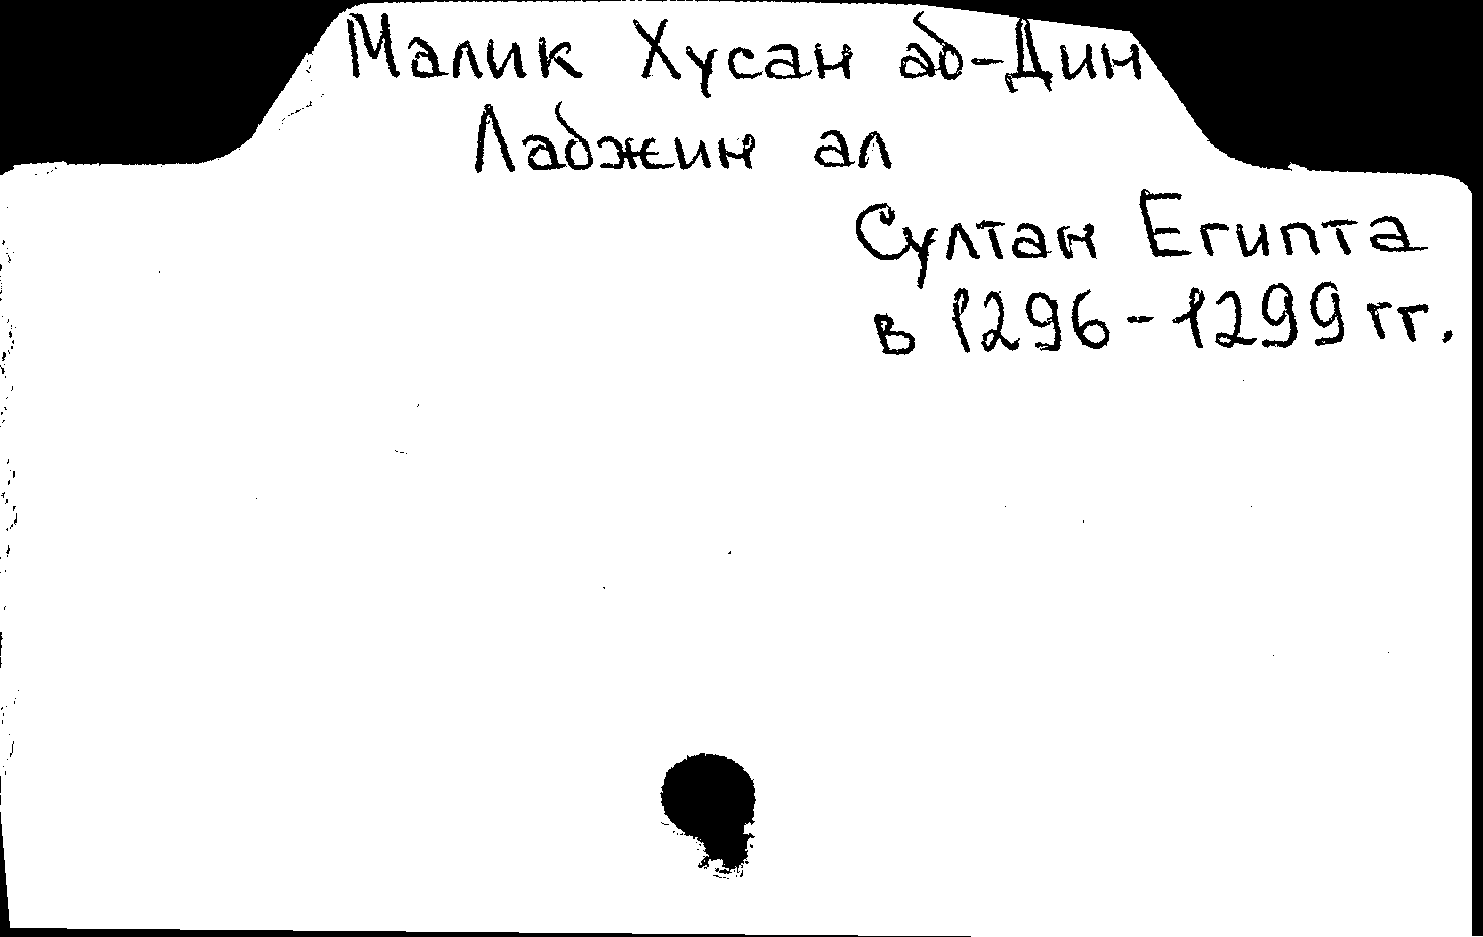 Малик Хусан аб-Дин
Лабджин ал
Султан Египта
в 1296-1299 гг.